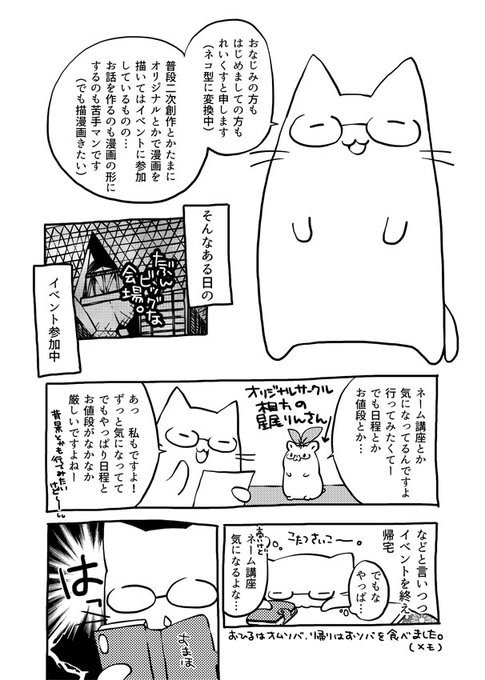 おなじみの方も
はじめましての方も
れいくすと申します
(ネコ型に変換中)
普段二次創作とかたまに
オリジナルとかで漫画を
描いてはイベントに参加
しているものの…
お話を作るのも漫画の形に
するのも苦手マンです
(でも描漫画きたい)
そんなある日の
たぶん
ビッグな
会場。
イベント参加中
ネーム講座とか
気になってるんですよ
行ってみたくてー
でも日程とか
お値段とか…
オリジナルサークル
相方の
星尾りんさん
あっ 私もですよ!
ずっと気になってて
でもやっぱり日程と
お値段がなかなか
厳しいですよねー
背景とかも行ってみたい
けどーん
などと言いつつ
イベントを終え
帰宅
こたつさいこー
でもな
やっぱ…
高いけど
ネーム講座
気になるよな…
おひるはオムソバ、帰りはおソバを食べました。
(メモ)
はっ
すまほ